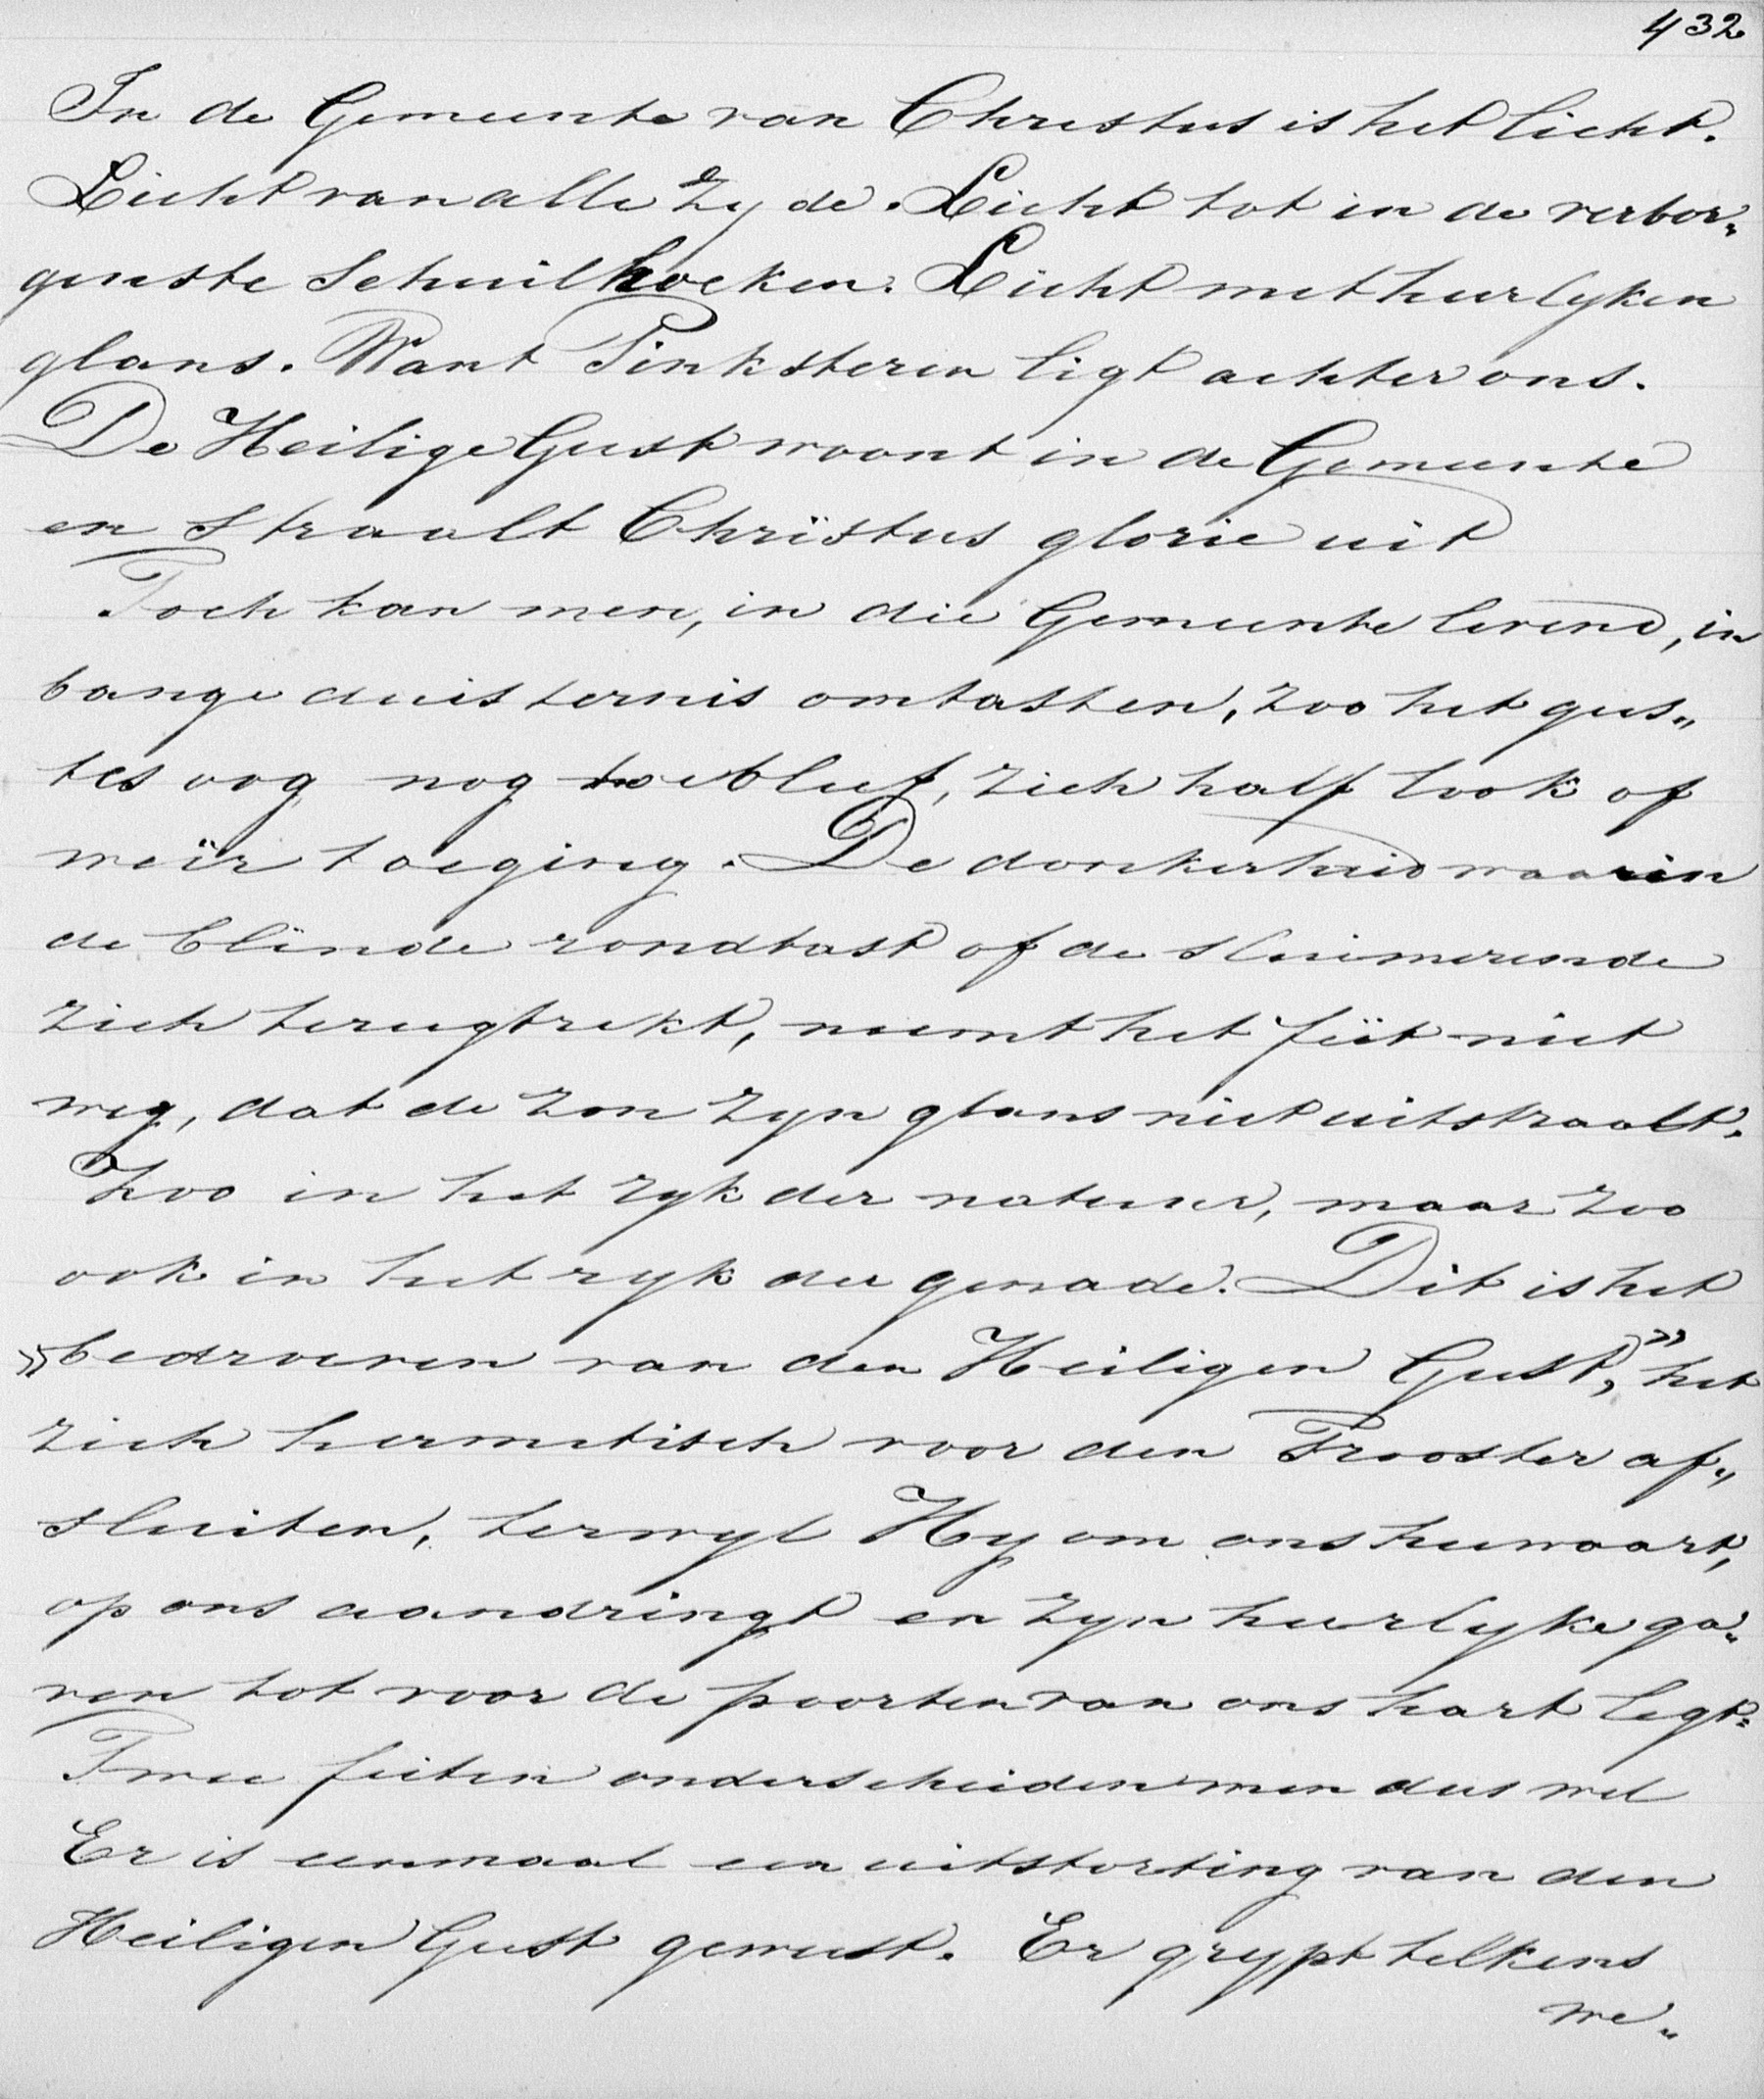 432
In de Gemeente van Christus is het licht.
Licht van alle zyde. Licht tot in de verbor„
genste schuilhoeken. Licht met heerlyken
glans. Want Pinksteren ligt achter ons.
De Heilige Geest woont in de Gemeente
en straalt Christus glorie uit
Toch kan men, in die Gemeente levend, in
bange duisternis omtasten, zoo het gees„
tes oog nog toe bleef, zich half look of
weêr toeging. De donkerheid waarin
de blinde rondtast of de sluimerende
zich terugtrekt, neemt het feit niet
weg, dat de zon zyn glans niet uitstraalt.
Zoo in het ryk der natuur, maar zoo
ook in het ryk der genade. Dit is het
»bedroeven van den Heiligen Geest,” het
zich hermetisch voor den Trooster af„
sluiten, terwyl Hy om ons heenwaart,
op ons aandringt en zyn heerlyke ga„
ven tot voor de poorten van ons hart legt.
Twee feiten onderscheiden men dus wel
Er is eenmaal een uitstorting van den
Heiligen Geest geweest. Er grypt telkens
we„